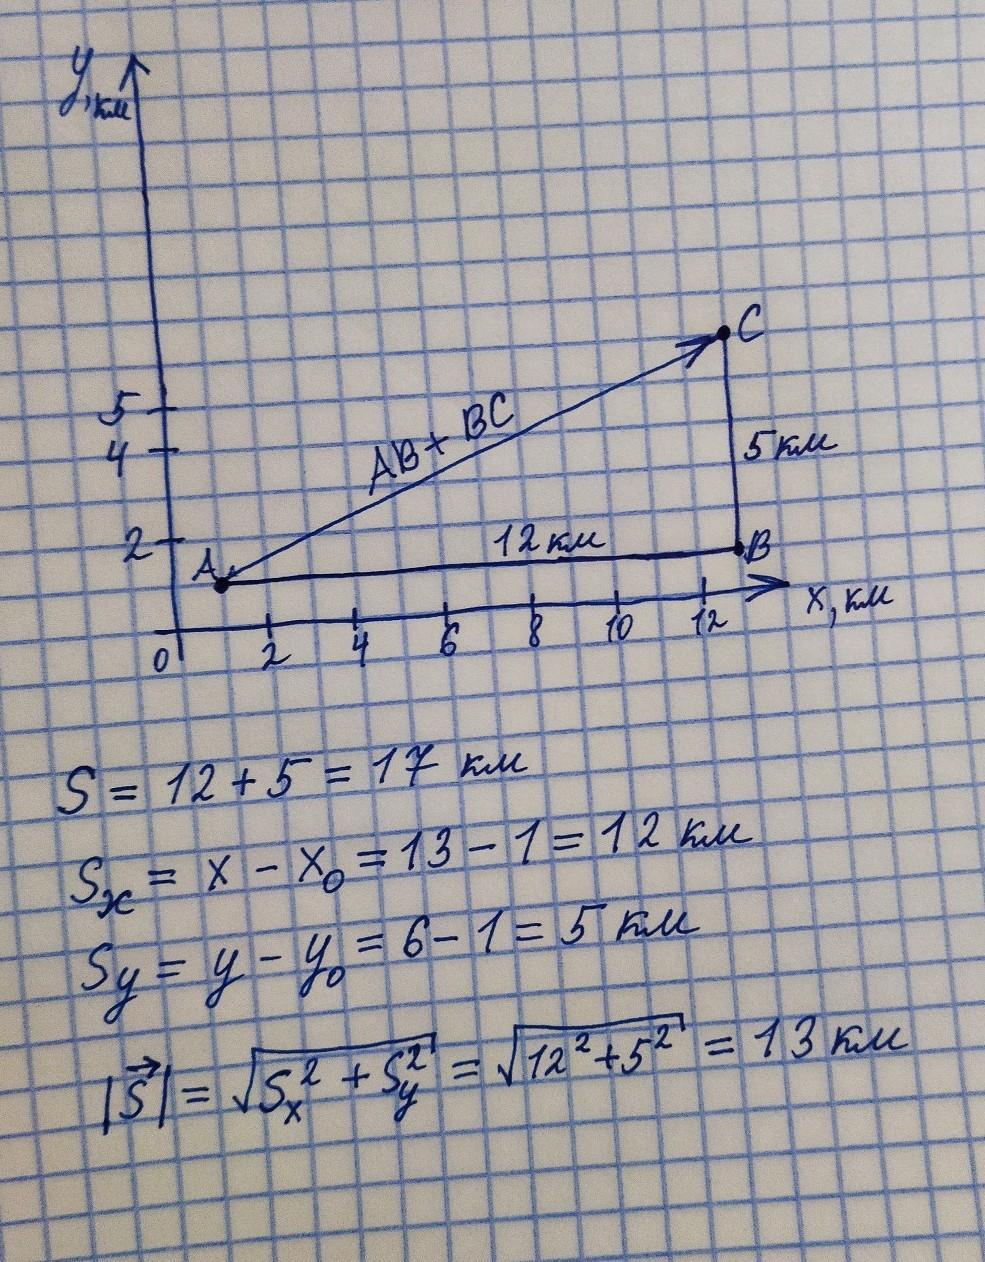 y, км
C
5
AB + BC
4
5 км
2
12 км
A
B
x, км
0 2 4 6 8 10 12
S = 12 + 5 = 17 км
Sx = x - x₀ = 13 - 1 = 12 км
Sy = y - y₀ = 6 - 1 = 5 км
|S⃗| = √(Sx² + Sy²) = √(12² + 5²) = 13 км